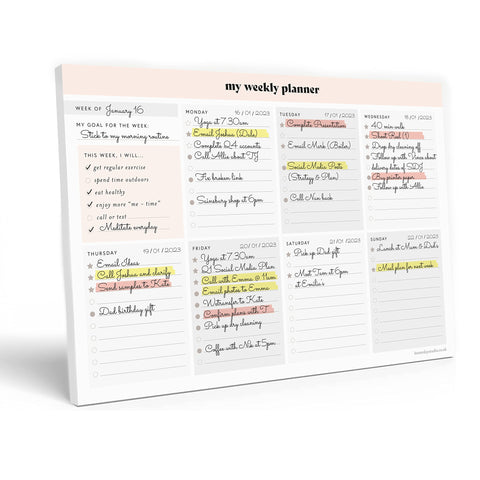 my weekly planner
WEEK OF January 16
MY GOAL FOR THE WEEK:
Stick to my morning routine
THIS WEEK, I WILL...
get regular exercise
spend time outdoors
eat healthy
enjoy more "me - time"
call or text
Meditate everyday
MONDAY 16 / 01 / 2023
Yoga at 7.30am
Email Joshua (Dele)
Complete Q4 accounts
Call Allie about TJ
Fix broken link
Sainsbury shop at 6pm
TUESDAY 17 / 01 / 2023
Complete Presentation
Email Mark (Bailor)
Social Media Posts
(Strategy & Plan)
Call Nan back
WEDNESDAY 18 / 01 / 2023
40 min walk
Shoot Reel (1)
Drop dry cleaning off
Follow up with Vince about
delivery dates of SDJ
Buy printer paper
Follow up with Allie
THURSDAY 19 / 01 / 2023
Email Ideas
Call Joshua and clarify
Send samples to Kate
Dad birthday gift
FRIDAY 20 / 01 / 2023
Yoga at 7.30am
Q1 Social Media Plan
Call with Emma @ 11am
Email photos to Emma
Wetransfer to Kate
Confirm plans with T
Pick up dry cleaning
Coffee with Nik at 5pm
SATURDAY 21 / 01 / 2023
Pick up Dad gift
Meet Tam at 6pm
at Emilio's
SUNDAY 22 / 01 / 2023
Lunch at Mum & Dad's
Meal plan for next week